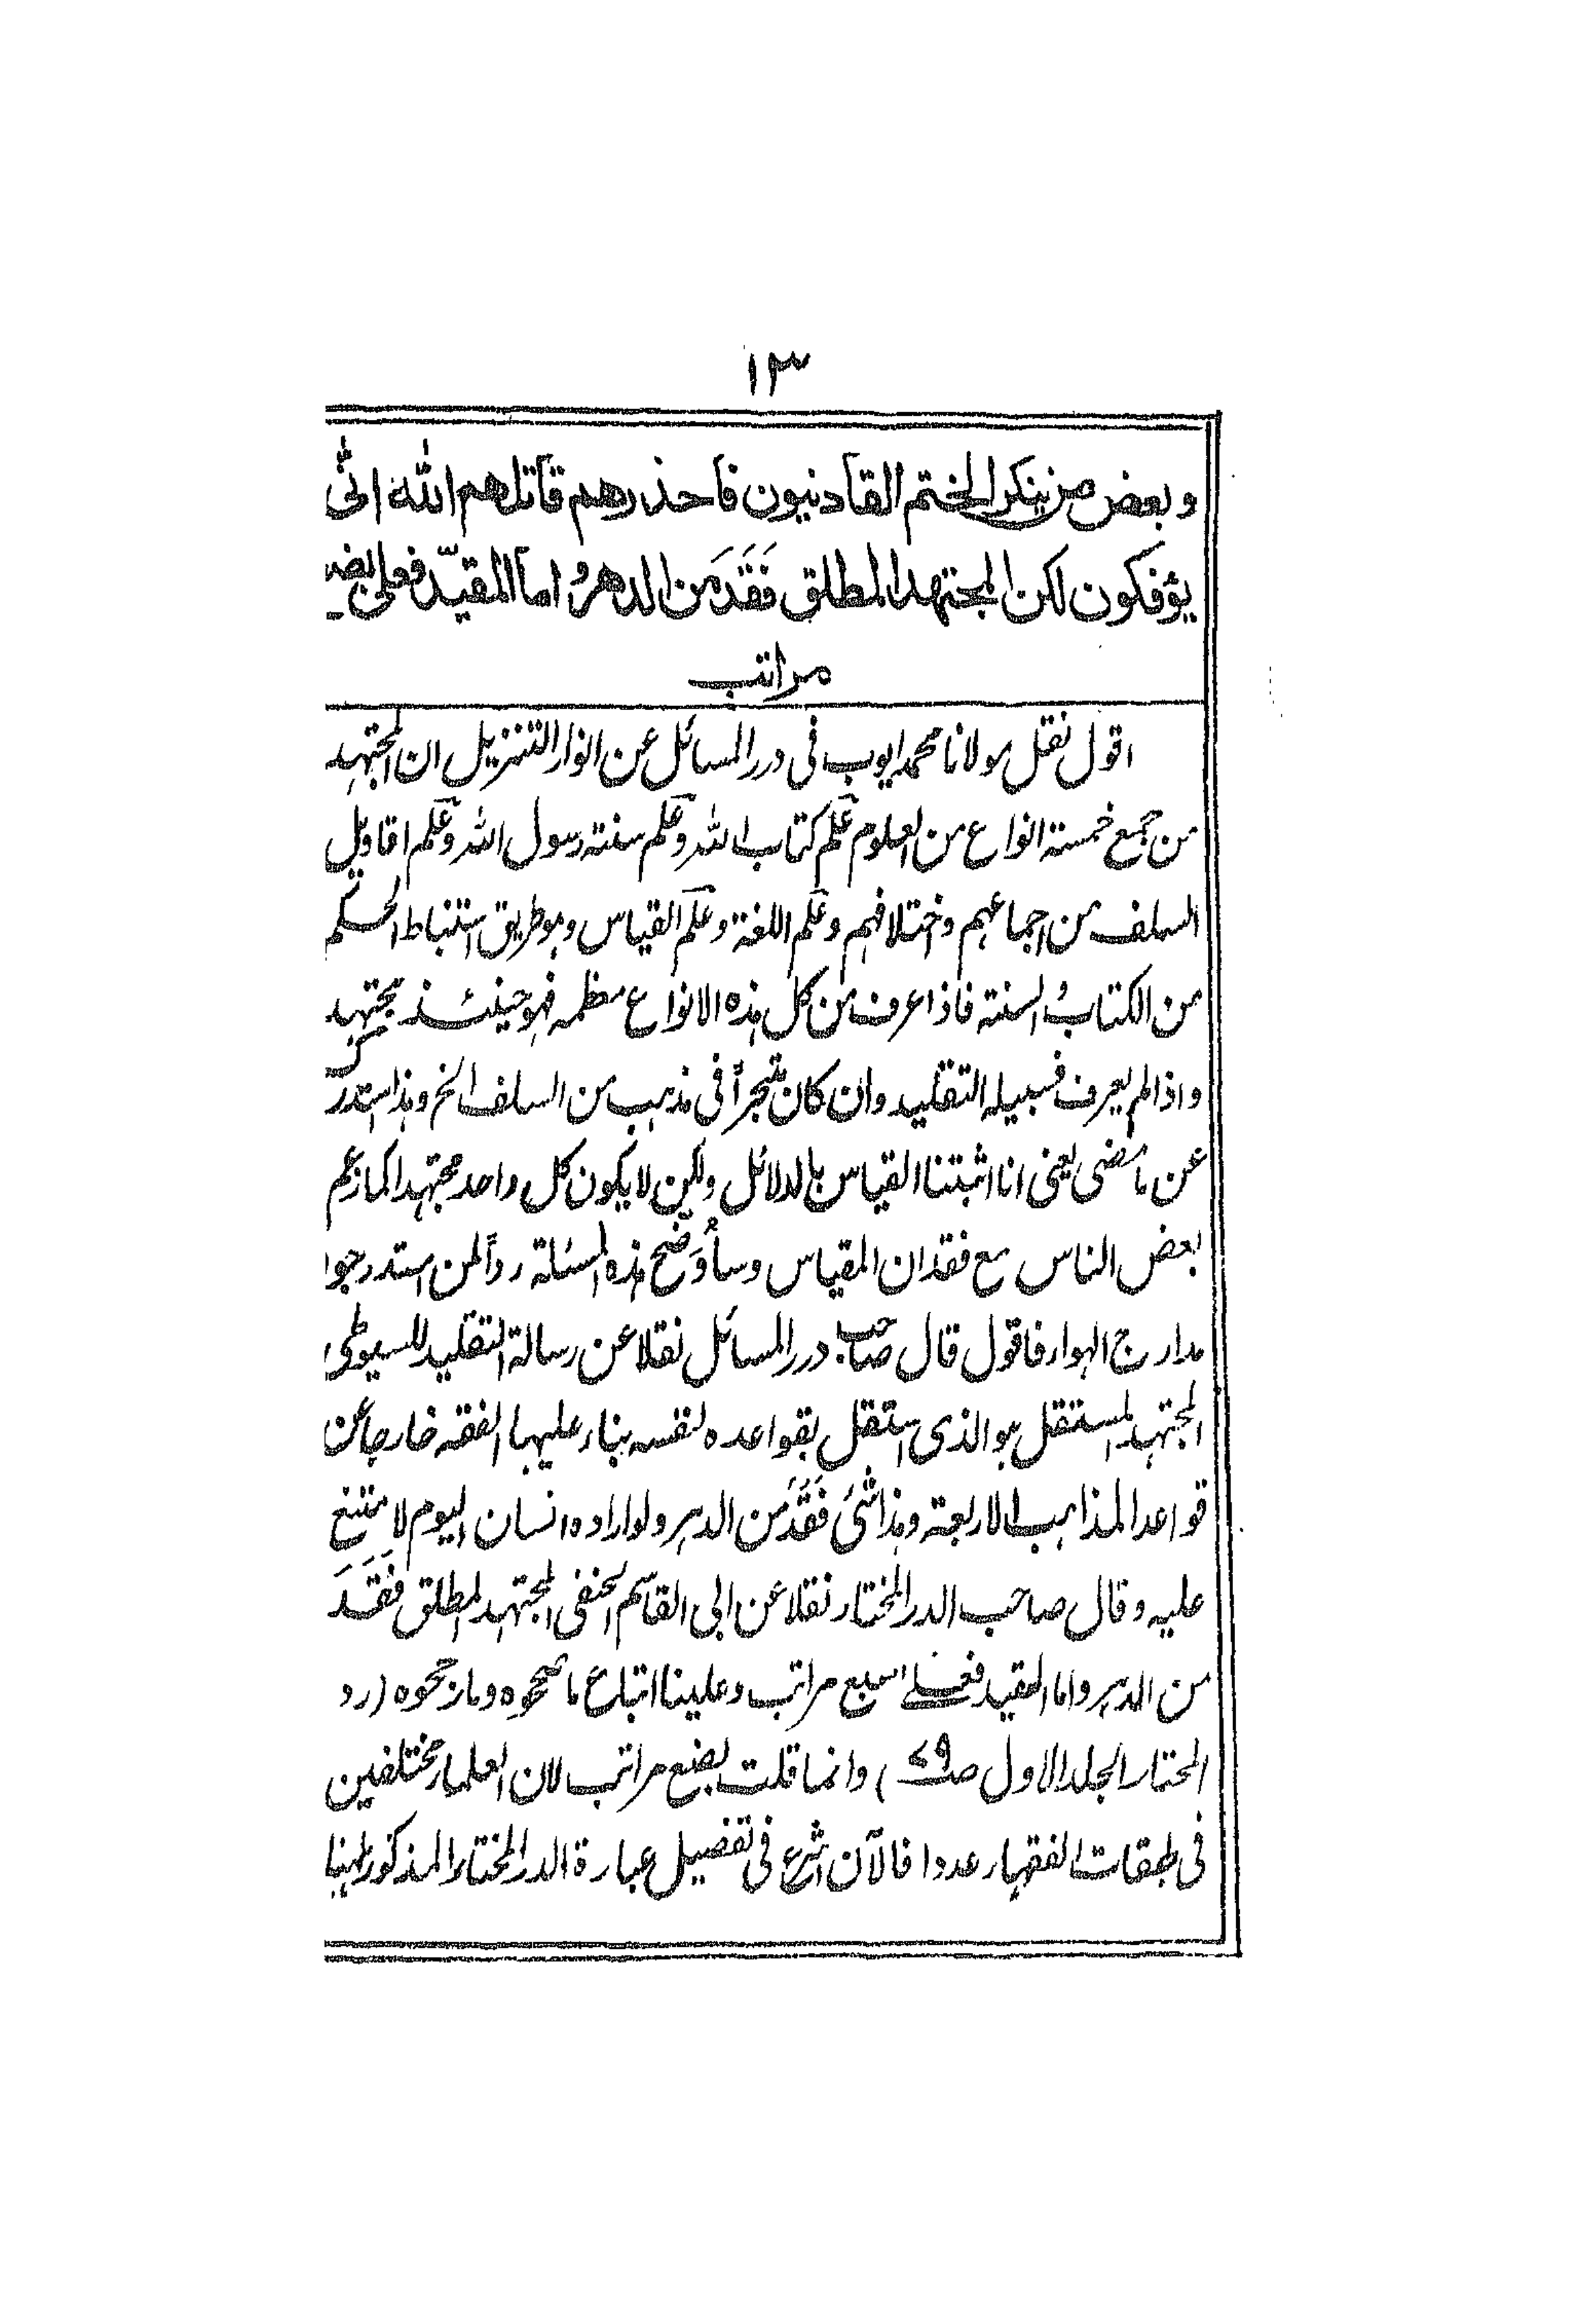 ١٣
وبعض من ينكر الختم القادنيون فاحذرهم قاتلهم الله انّٰى
يؤفكون لكن المجتهد المطلق فَقَدَ مَن الدهرُ واما المقيّد فعلى بضع
مراتب
اقول نقل مولانا محمد ايوب فى درر المسائل عن انوار التنزيل ان المجتهد
من جمع خمسة انواع من العلوم عَلَّم كتاب الله وعَلَّم سنته رسول الله وعَلَّم اقاويل
السلف من اجماعهم واختلافهم وعَلَّم اللغة وعَلَّم القياس وهو طريق استنباط الحكم
من الكتاب والسنته فاذا عرف من كل هذه الانواع معظمه فهو حينئذ مجتهد
واذا لم يعرف فسبيله التقليد وان كان متبحراً فى مذهب من السلف الخ وهذا استدرك
عن ما مضى يعنى انا اثبتنا القياس بالدلائل ولكن لا يكون كل واحد مجتهدا كما زعم
بعض الناس مع فقدان المقياس وسأُوَضح هذه المسئلة رداً لمن استدرجوا
مدارج الهواء فاقول قال صاحب درر المسائل نقلا عن رسالة التقليد للسيوطى
المجتهد المستقل هو الذى استقل بقواعده لنفسه بناء عليها الفقه خارجا عن
قواعد المذاهب الاربعة وهذا شئ فَقَدَ من الدهر ولو اراده انسان اليوم لامتنع
عليه وقال صاحب الدر المختار نقلا عن ابى القاسم الحنفى المجتهد المطلق فَقَدَ
من الدهر واما المقيد فعلى سبع مراتب وعلينا اتباع ما صححوه وما رجحوه (رد
المحتار الجلد الاول صـ٧٩) وانما قلت بضع مراتب لان العلماء مختلفين
فى طبقات الفقهاء عددا فالآن اشرع فى تفصيل عبارة الدر المختار المذكور ههنا